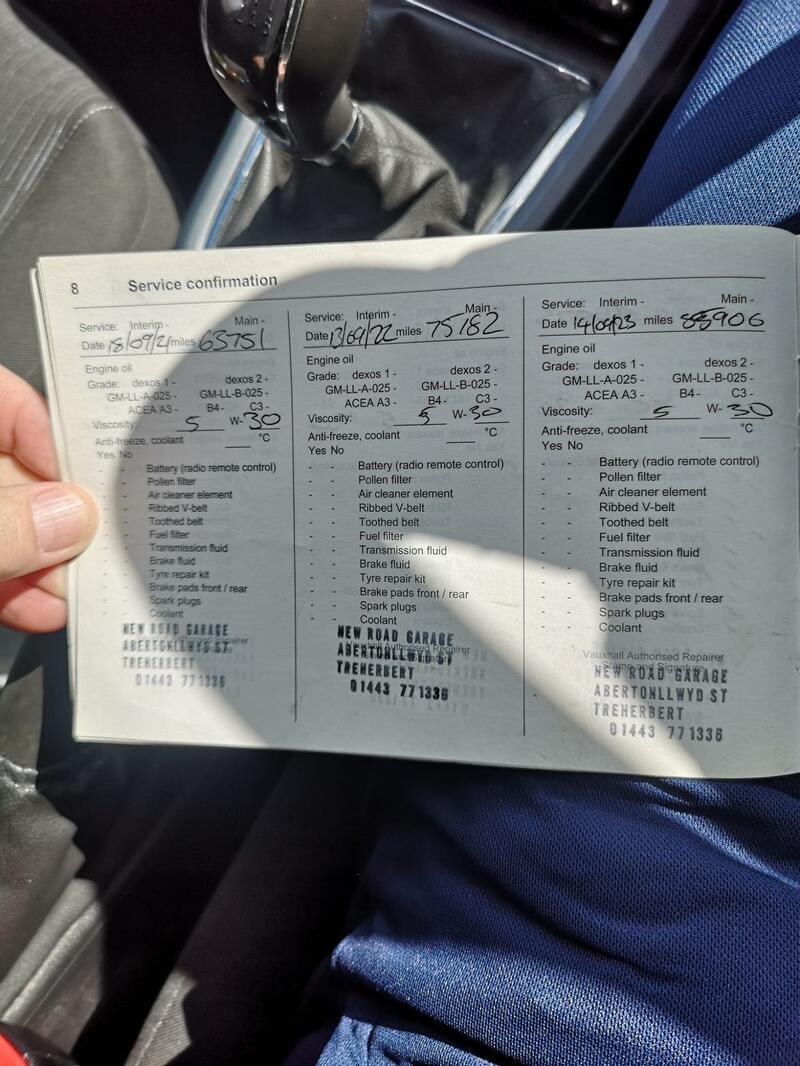 8 Service confirmation
Service: Interim - Main -
Date 18/09/21 miles 63751
Engine oil
Grade: dexos 1 - dexos 2 -
GM-LL-A-025 - GM-LL-B-025 -
ACEA A3 - B4 - C3 -
Viscosity: 5 W- 30
Anti-freeze, coolant °C
Yes No
- - Battery (radio remote control)
- - Pollen filter
- - Air cleaner element
- - Ribbed V-belt
- - Toothed belt
- - Fuel filter
- - Transmission fluid
- - Brake fluid
- - Tyre repair kit
- - Brake pads front / rear
- - Spark plugs
- - Coolant
NEW ROAD GARAGE
ABERTONLLWYD ST
TREHERBERT
01443 771336
Service: Interim - Main -
Date 13/09/22 miles 75182
Engine oil
Grade: dexos 1 - dexos 2 -
GM-LL-A-025 - GM-LL-B-025 -
ACEA A3 - B4 - C3 -
Viscosity: 5 W- 30
Anti-freeze, coolant °C
Yes No
- - Battery (radio remote control)
- - Pollen filter
- - Air cleaner element
- - Ribbed V-belt
- - Toothed belt
- - Fuel filter
- - Transmission fluid
- - Brake fluid
- - Tyre repair kit
- - Brake pads front / rear
- - Spark plugs
- - Coolant
Vauxhall Authorised Repairer
NEW ROAD GARAGE
ABERTONLLWYD ST
TREHERBERT
01443 771336
Service: Interim - Main -
Date 14/09/23 miles 88906
Engine oil
Grade: dexos 1 - dexos 2 -
GM-LL-A-025 - GM-LL-B-025 -
ACEA A3 - B4 - C3 -
Viscosity: 5 W- 30
Anti-freeze, coolant °C
Yes No
- - Battery (radio remote control)
- - Pollen filter
- - Air cleaner element
- - Ribbed V-belt
- - Toothed belt
- - Fuel filter
- - Transmission fluid
- - Brake fluid
- - Tyre repair kit
- - Brake pads front / rear
- - Spark plugs
- - Coolant
Vauxhall Authorised Repairer
Stamp and Signature
NEW ROAD GARAGE
ABERTONLLWYD ST
TREHERBERT
01443 771336